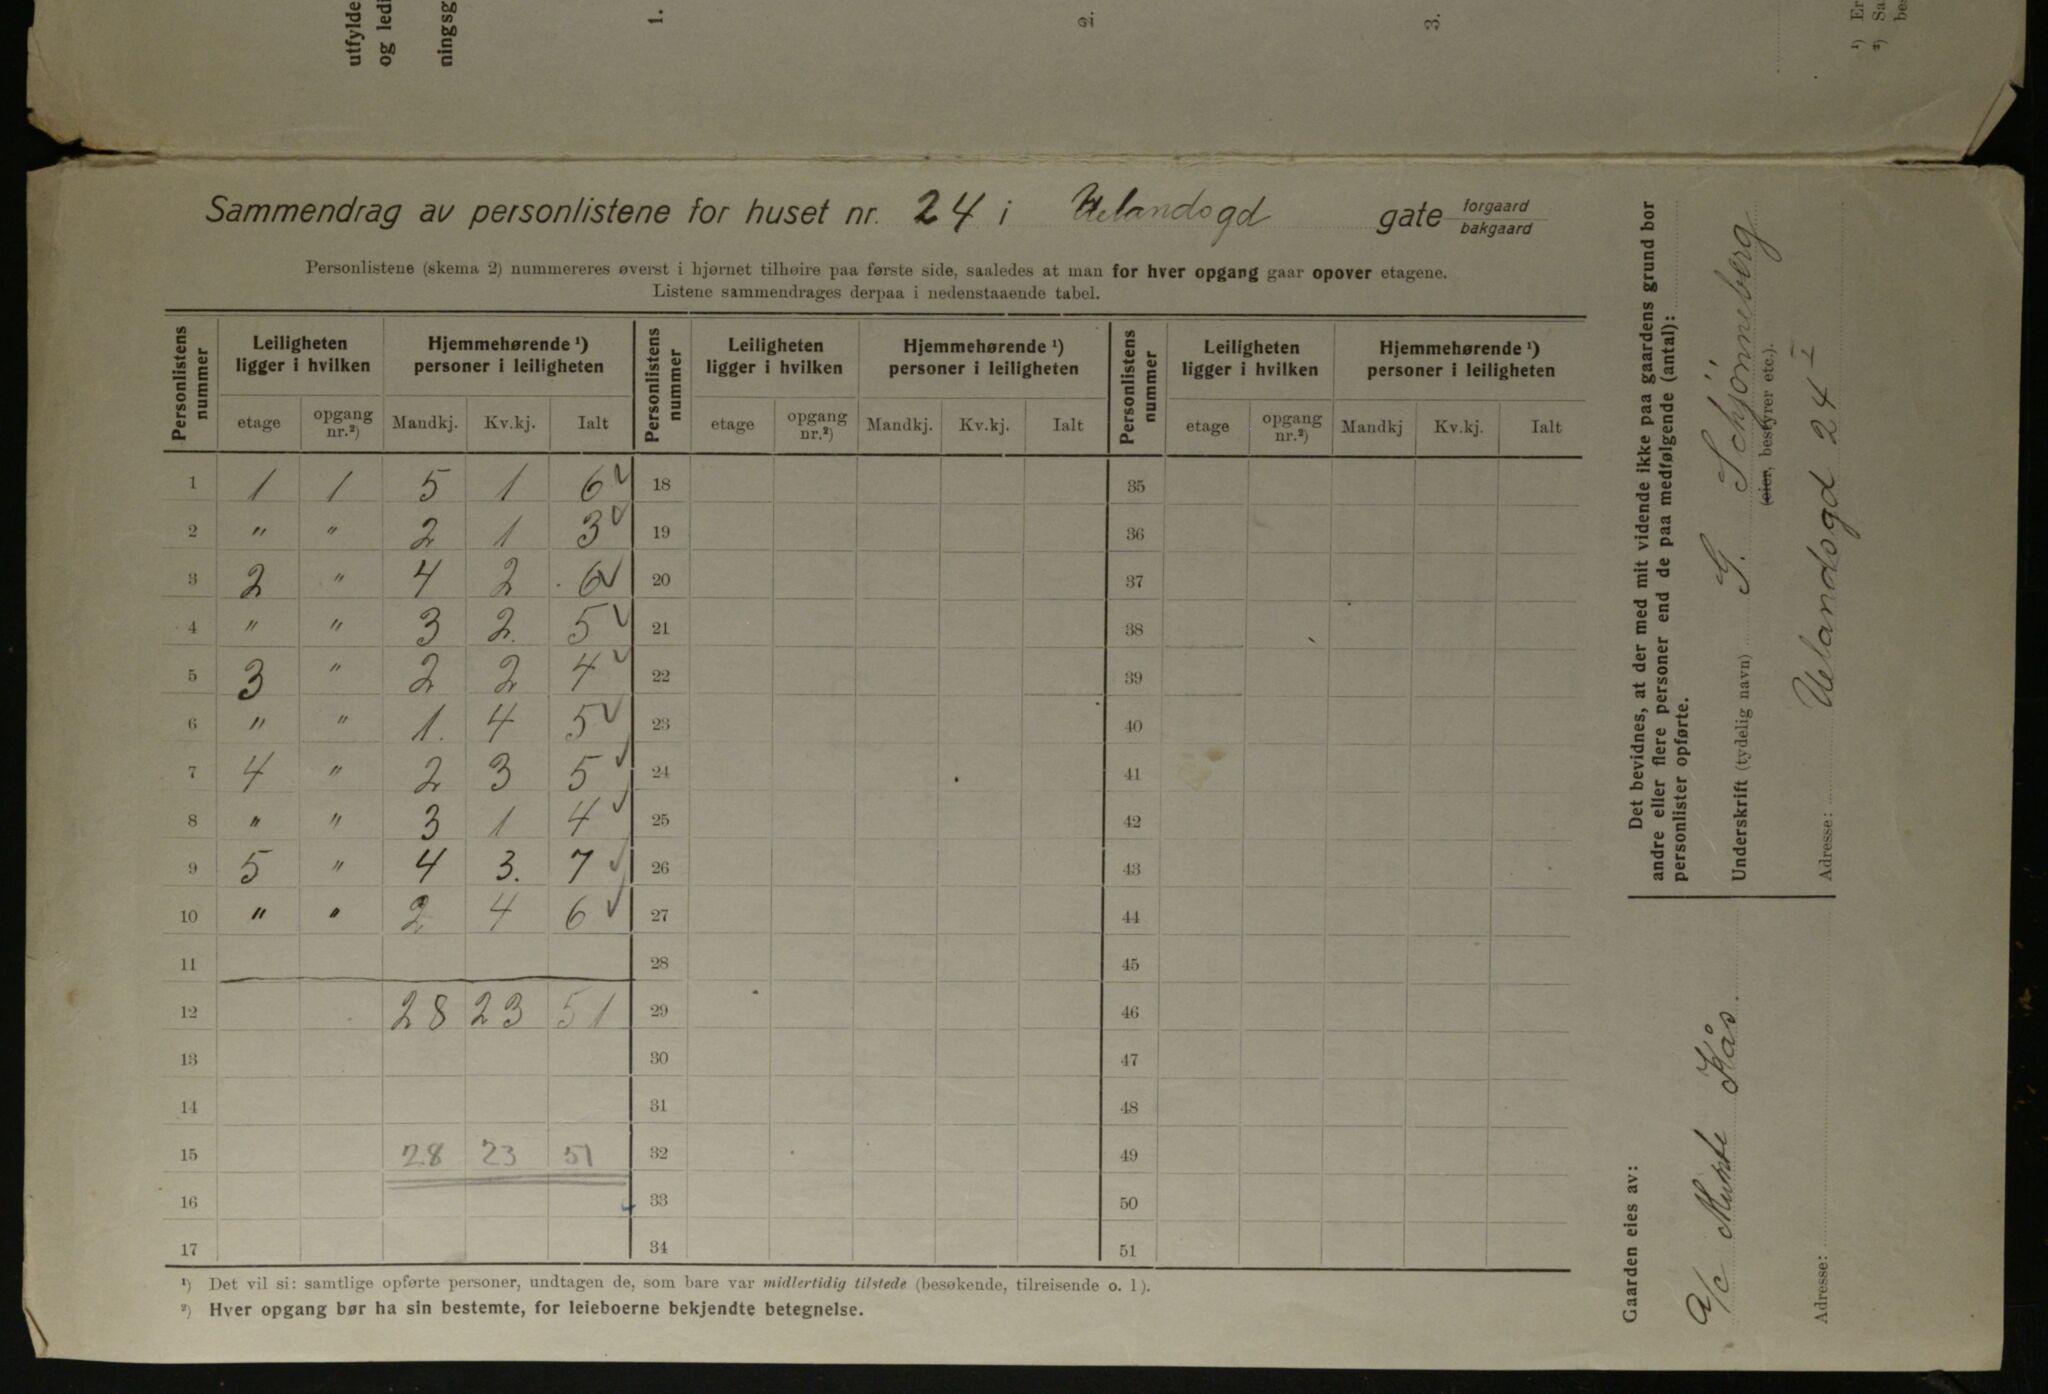 utfylde
og ledi
ningsg
1.
2.
3.
¹) Er
²) Sa
be
Sammendrag av personlistene for huset nr. 24 i Uelandsgd gate forgaard bakgaard
Personlistene (skema 2) nummereres øverst i hjørnet tilhøire paa første side, saaledes at man for hver opgang gaar opover etagene.
Listene sammendrages derpaa i nedenstaaende tabel.
Personlistens nummer | Leiligheten ligger i hvilken | Hjemmehørende ¹) personer i leiligheten | Personlistens nummer | Leiligheten ligger i hvilken | Hjemmehørende ¹) personer i leiligheten | Personlistens nummer | Leiligheten ligger i hvilken | Hjemmehørende ¹) personer i leiligheten
etage | opgang nr.²) | Mandkj. | Kv.kj. | Ialt | etage | opgang nr.²) | Mandkj. | Kv.kj. | Ialt | etage | opgang nr.²) | Mandkj | Kv.kj. | Ialt
1 1 1 5 1 6 ✓ 18 35
2 " " 2 1 3 ✓ 19 36
3 2 " 4 2 6 ✓ 20 37
4 " " 3 2 5 ✓ 21 38
5 3 " 2 2 4 ✓ 22 39
6 " " 1. 4 5 ✓ 23 40
7 4 " 2 3 5 ✓ 24 41
8 " " 3 1 4 ✓ 25 42
9 5 " 4 3. 7 ✓ 26 43
10 " " 2 4 6 ✓ 27 44
11 28 45
12 28 23 51 29 46
13 30 47
14 31 48
15 28 23 51 32 49
16 33 50
17 34 51
¹) Det vil si: samtlige opførte personer, undtagen de, som bare var midlertidig tilstede (besøkende, tilreisende o. l).
²) Hver opgang bør ha sin bestemte, for leieboerne bekjendte betegnelse.
Det bevidnes, at der med mit vidende ikke paa gaardens grund bor
andre eller flere personer end de paa medfølgende (antal):
personlister opførte.
Underskrift (tydelig navn) G. Schjønneberg
(eier, bestyrer etc.).
Adresse: Uelandsgd 24 I
Gaarden eies av:
A/c Kås
Adresse: